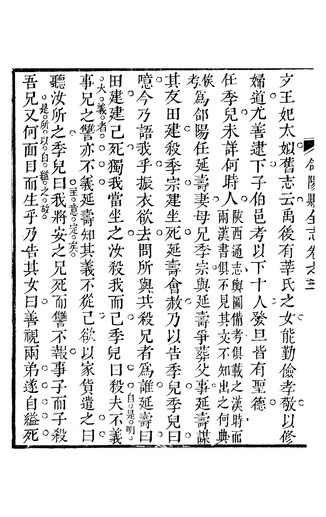 郃陽縣全志卷之三
文王妃太姒舊志云禹後有莘氏之女能勤儉孝敬以修
婦道尤善逮下子伯邑考以下十人發旦皆有聖德
任季兒未詳何時人陝西通志輿圖備考俱載之漢時而
兩漢書俱不見其文不知出之何典
俟考爲郃陽任延壽妻母兄季宗與延壽爭葬父事延壽謀
其友田建殺季宗建坐死延壽會赦乃以告季兒季兒曰
噫今乃語我乎振衣欲去問所與共殺兄者爲誰延壽曰
田建建已死獨我當坐之汝殺我而已季兒曰殺夫不義
自是明
大義者
事兄之讐亦不義延壽知其義不從已欲以家貲遣之曰
主意定矣
聽汝所之季兒曰我將安之兄死而讐不報事子而子殺
是所以自縊之
吾兄又何面目而生乎乃告其女曰善視兩弟遂自縊死